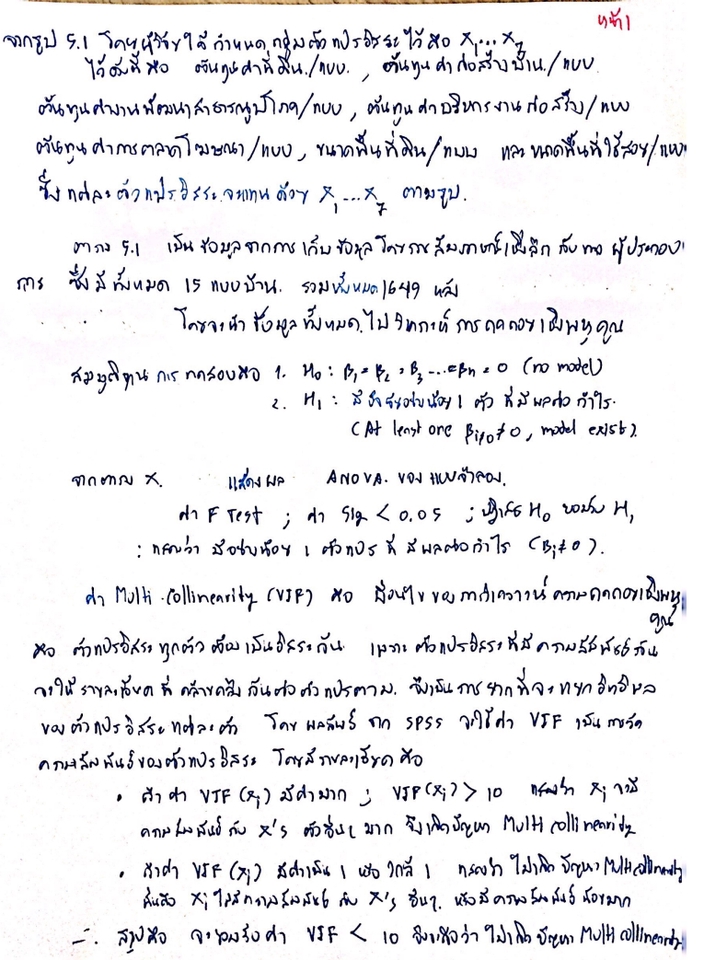 หน้า 1
จากรูป 5.1 โดยผู้วิจัยได้กำหนดกลุ่มตัวแปรอิสระไว้คือ X₁...X₇
ไว้ดังนี้คือ ต้นทุนค่าที่ดิน/แบบ, ต้นทุนค่าก่อสร้างบ้าน/แบบ
ต้นทุนค่างานพัฒนาสาธารณูปโภค/แบบ, ต้นทุนค่าบริหารงานก่อสร้าง/แบบ
ต้นทุนค่าการตลาดโฆษณา/แบบ, ขนาดพื้นที่ดิน/แบบ และขนาดพื้นที่ใช้สอย/แบบ
ซึ่งแต่ละตัวแปรอิสระจะแทนด้วย X₁...X₇ ตามรูป.
ตาราง 5.1 เป็นข้อมูลจากการเก็บข้อมูลโดยการสัมภาษณ์เชิงลึกกับทางผู้ประกอบ
การ ซึ่งมีทั้งหมด 15 แบบบ้าน. รวมทั้งหมด 1649 หลัง
โดยจะนำข้อมูลทั้งหมดไปวิเคราะห์การถดถอยเชิงพหุคูณ
สมมุติฐานการทดสอบคือ 1. H₀ : β₁ = β₂ = β₃ ... = βn = 0 (no model)
2. H₁ : มีปัจจัยอย่างน้อย 1 ตัว ที่มีผลต่อกำไร.
(At least one βi ≠ 0, model exists).
จากตาราง X. แสดงผล ANOVA. ของแบบจำลอง.
ค่า F Test ; ค่า Sig < 0.05 ; ปฏิเสธ H₀ ยอมรับ H₁
: แสดงว่า มีอย่างน้อย 1 ตัวแปร ที่มีผลต่อกำไร (Bi ≠ 0).
ค่า Multi-Collinearity (VIF) คือ เงื่อนไขของการวิเคราะห์ความถดถอยเชิงพหุ
คูณ
คือ ตัวแปรอิสระทุกตัวต้องเป็นอิสระกัน เพราะตัวแปรอิสระที่มีความสัมพันธ์กัน
จะให้รายละเอียดที่คล้ายคลึงกันต่อตัวแปรตาม. จึงเป็นการยากที่จะแยกอิทธิพล
ของตัวแปรอิสระแต่ละตัว โดยผลลัพธ์จาก SPSS จะใช้ค่า VIF เป็นการวัด
ความสัมพันธ์ของตัวแปรอิสระ โดยมีรายละเอียดคือ
• ถ้าค่า VIF (Xi) มีค่ามาก ; VIF(Xi) > 10 แสดงว่า Xi จะมี
ความสัมพันธ์กับ X's ตัวอื่นๆ มาก จึงเกิดปัญหา Multi collinearity
• ถ้าค่า VIF (Xi) มีค่าเป็น 1 หรือใกล้ 1 แสดงว่า ไม่เกิดปัญหา Multi collinearity
นั่นคือ Xi ไม่มีความสัมพันธ์กับ X's อื่นๆ. หรือมีความสัมพันธ์น้อยมาก
∴ สรุปคือ จะยอมรับค่า VIF < 10 จึงจะถือว่าไม่เกิดปัญหา Multi collinearity